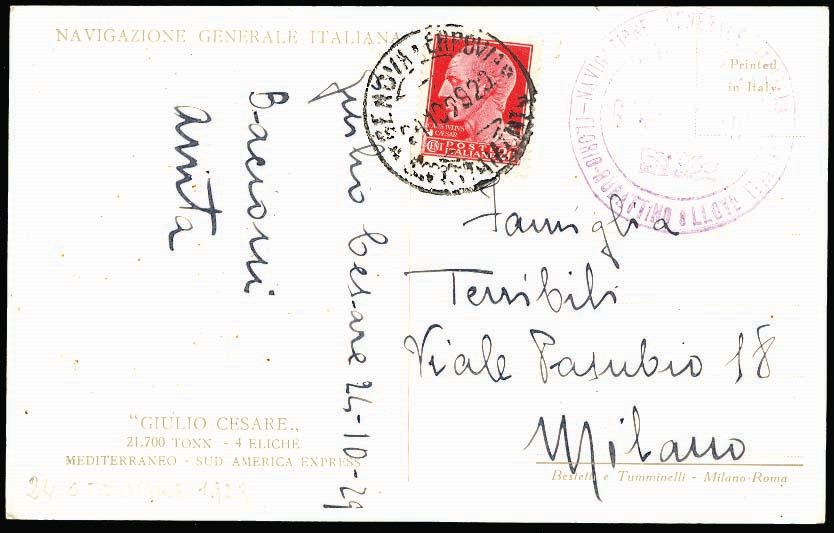 NAVIGAZIONE GENERALE ITALIANA
Giulio Cesare 24-10-29
Bacioni
Anita
"GIULIO CESARE„
21.700 TONN - 4 ELICHE
MEDITERRANEO - SUD AMERICA EXPRESS
GENOVA FERROVIA
IVLIVS
CAESAR
CENT POSTE
ITALIANE
Printed
in Italy
Famiglia
Terribili
Viale Pasubio 18
Milano
Bestetti e Tumminelli - Milano-Roma